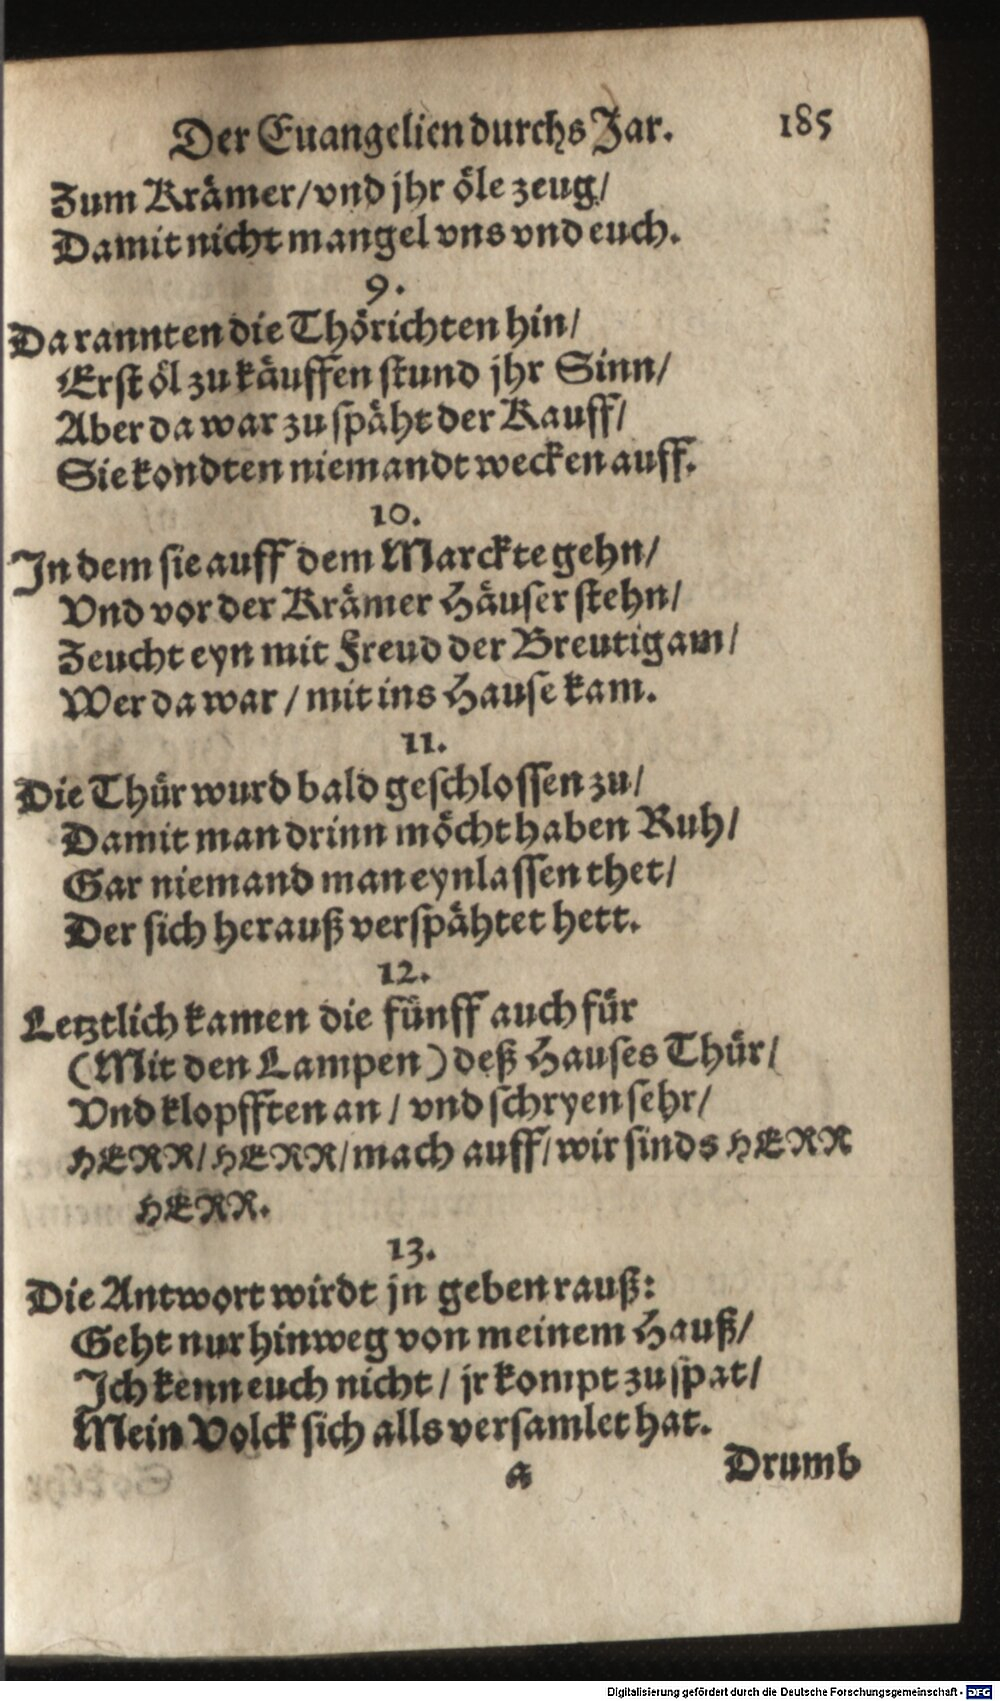 Der Euangelien durchs Jar. 185
Zum Krämer/ vnd jhr öle zeug/
Damit nicht mangel vns vnd euch.
9.
Da rannten die Thörichten hin/
Erst öl zu käuffen stund jhr Sinn/
Aber da war zu späht der Kauff/
Sie kondten niemandt wecken auff.
10.
In dem sie auff dem Marckte gehn/
Vnd vor der Krämer Häuser stehn/
Zeucht eyn mit Freud der Breutigam/
Wer da war / mit ins Hause kam.
11.
Die Thür wurd bald geschlossen zu/
Damit man drinn möcht haben Ruh/
Gar niemand man eynlassen thet/
Der sich herauß verspähtet hett.
12.
Letztlich kamen die fünff auch für
(Mit den Lampen) deß Hauses Thür/
Vnd klopfften an / vnd schryen sehr/
HERR/ HERR/ mach auff/ wir sinds HERR
HERR.
13.
Die Antwort wirdt jn geben rauß:
Geht nur hinweg von meinem Hauß/
Ich kenn euch nicht / jr kompt zu spat/
Mein Volck sich alls versamlet hat.
a Drumb
Digitalisierung gefördert durch die Deutsche Forschungsgemeinschaft - DFG